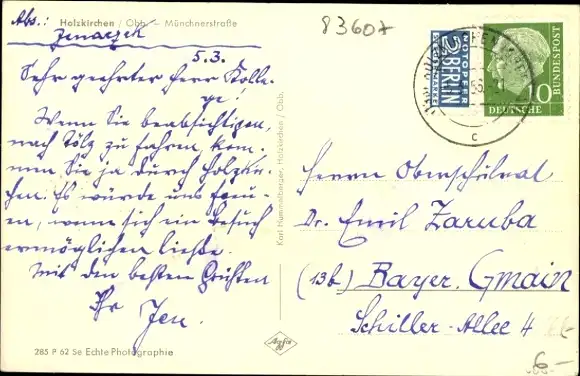 Abs.: Holzkirchen / Obb. – Münchnerstraße
83607
5.3.
Sehr geehrter Herr Kolle-
ge!
Wenn Sie beabsichtigen,
nach Tölz zu fahren, kom-
men Sie ja durch Holzkir-
chen. Es würde uns freu-
en, wenn sich ein Besuch
ermöglichen ließe.
Mit den besten Grüßen
Ihr Jen.
285 P 62 Se Echte Photographie
Karl Hummelberger, Holzkirchen / Obb.
Agfa
NOTOPFER
2 BERLIN
STEUERMARKE
10
DEUTSCHE
BUNDESPOST
c
Herrn Oberschulrat
Dr. Emil Zaruba
(13b) Bayer. Gmain
Schiller-Allee 4
6-